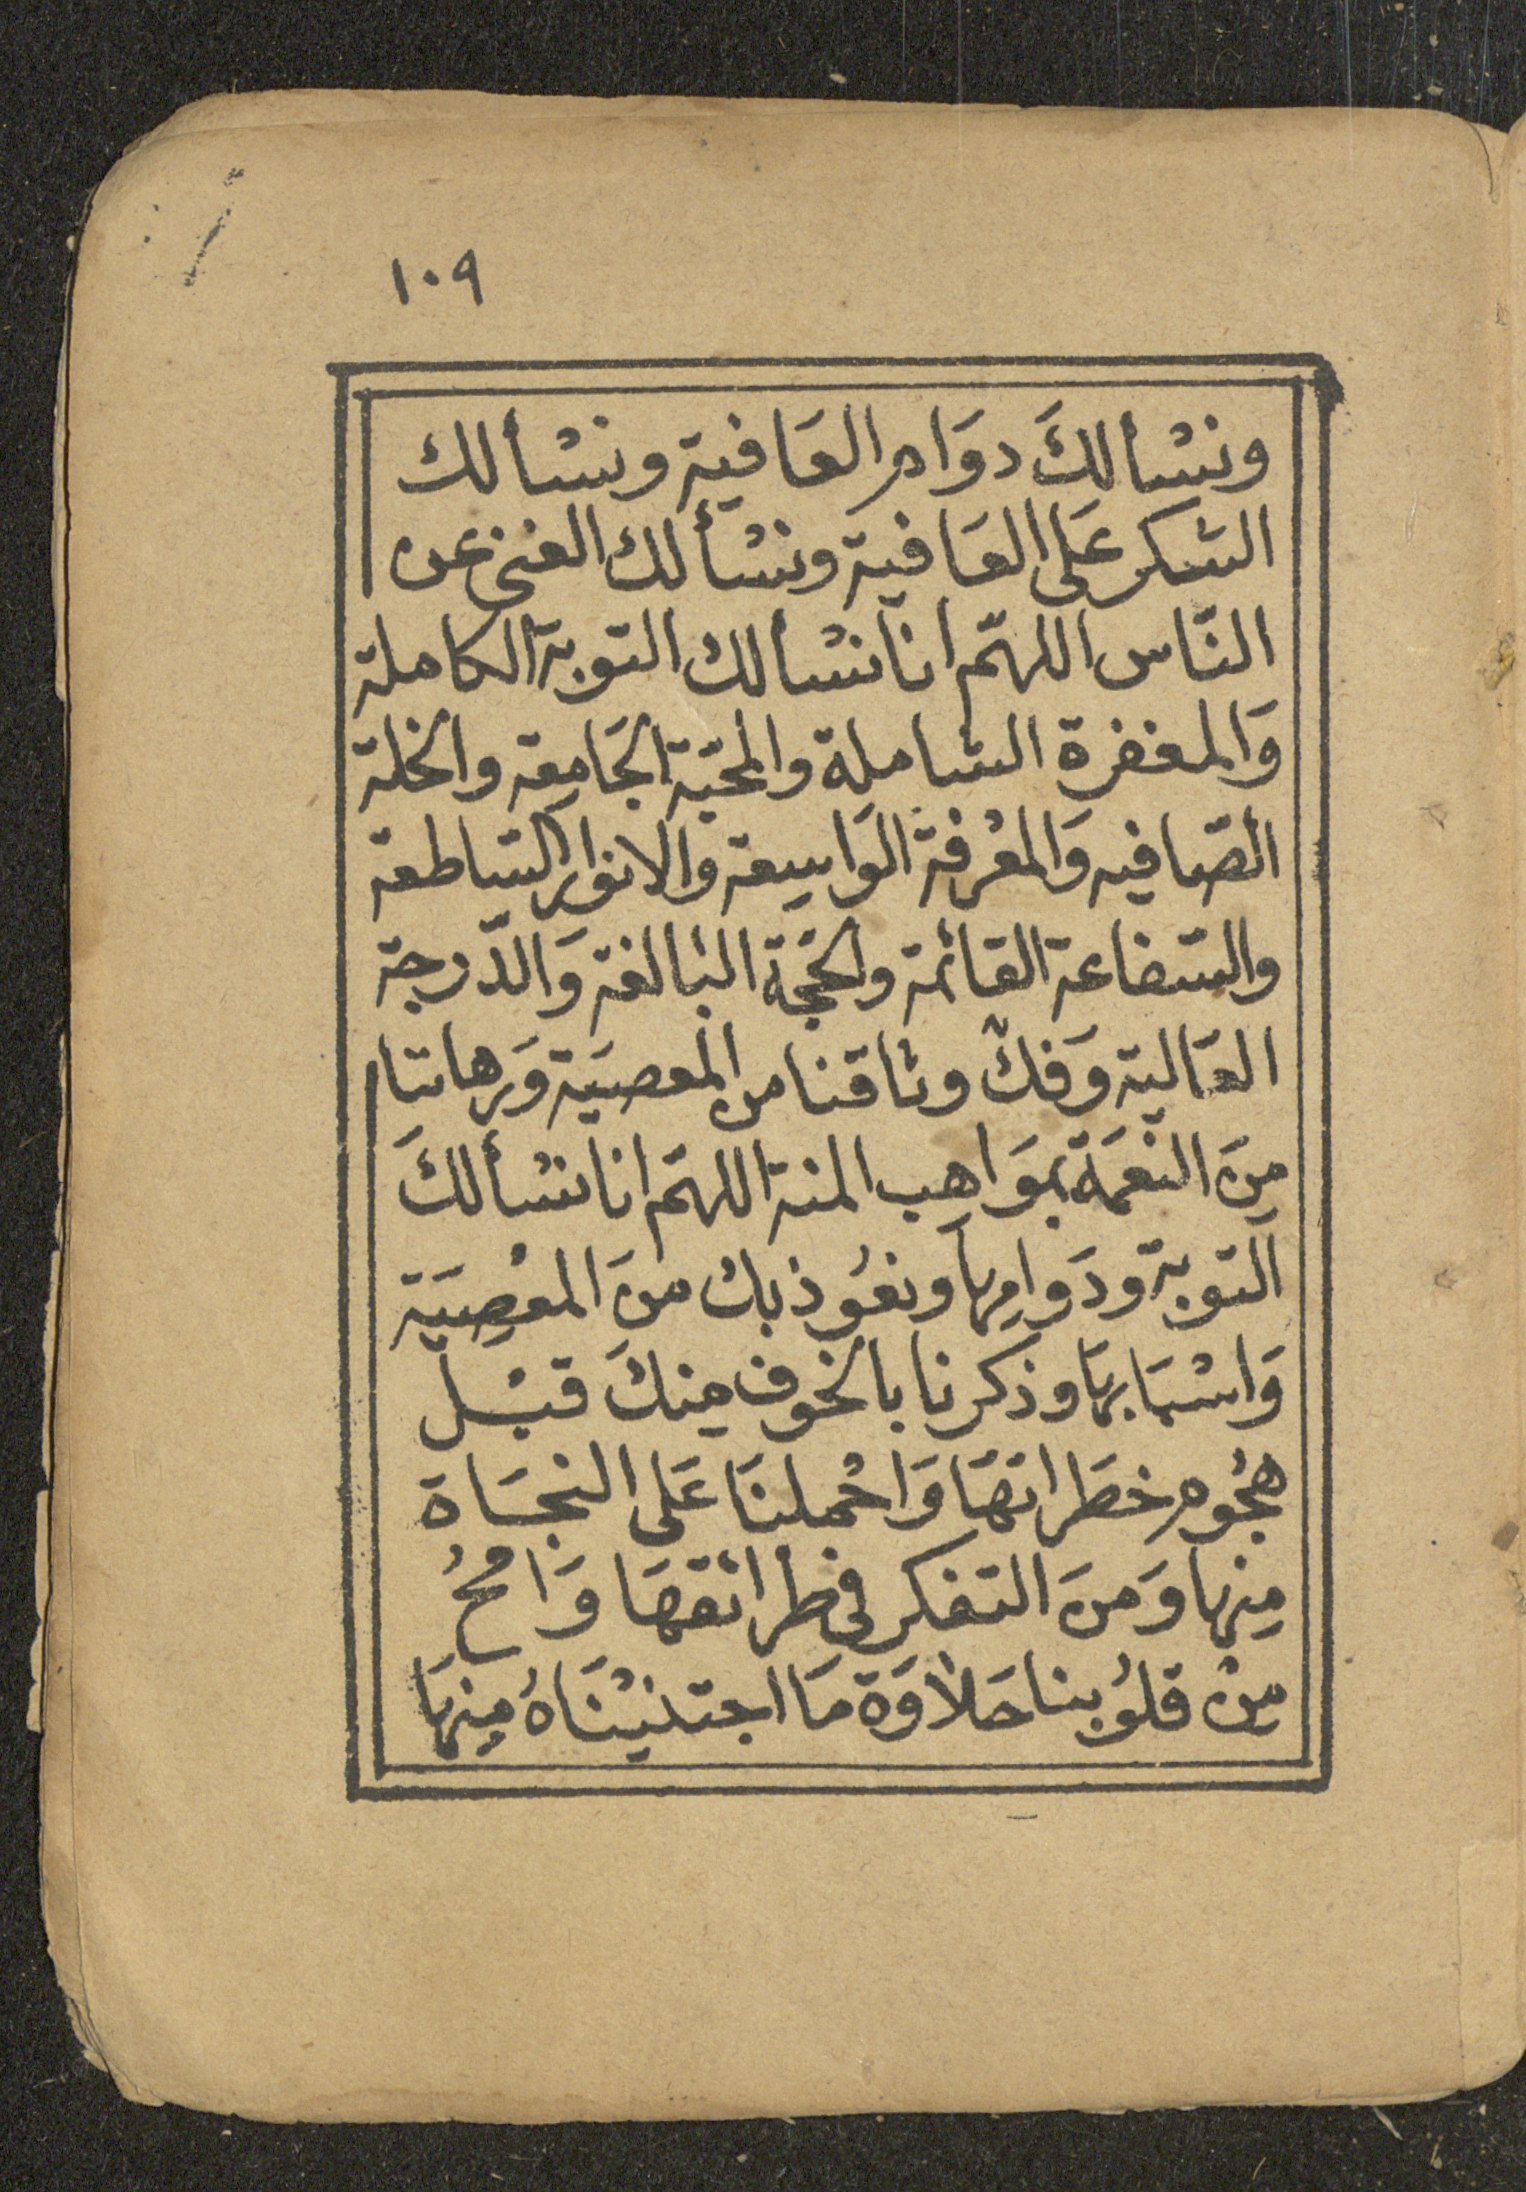 ١٠٩
ونسْألكَ دوَام العَافية ونسْألك
الشكر عَلى العَافية ونسْألك الغنى عن
النّاس اللهمّ انا نسْألك التوبة الكاملة
وَالمغفرة الشاملة والمحبّة الجَامِعة والخلة
الصّافيه وَالمعْرفة الوَاسِعة والانوار الساطعة
والشفاعة القائمة والحجّة البَالغة وَالدّرجة
العَالية وَفكّ وثاقنا من المعصيَة وَرهاننا
مِنَ النعمَة بموَاهِب المنة اللهمّ انا نسْألكَ
التوبة ودَوامِها ونعُوذ بك منَ المعْصِيَة
وَاسْبَابهَا وذكرنا بالخوف مِنكَ قبْل
هجُوم خطَراتهَا وَاحْملنَا عَلى النجَاة
مِنها وَمنَ التفكر في طرائقهَا وَامْحُ
مِنْ قلوُبنا حَلاوَة مَا اجتنيْنَاهُ مِنهَا